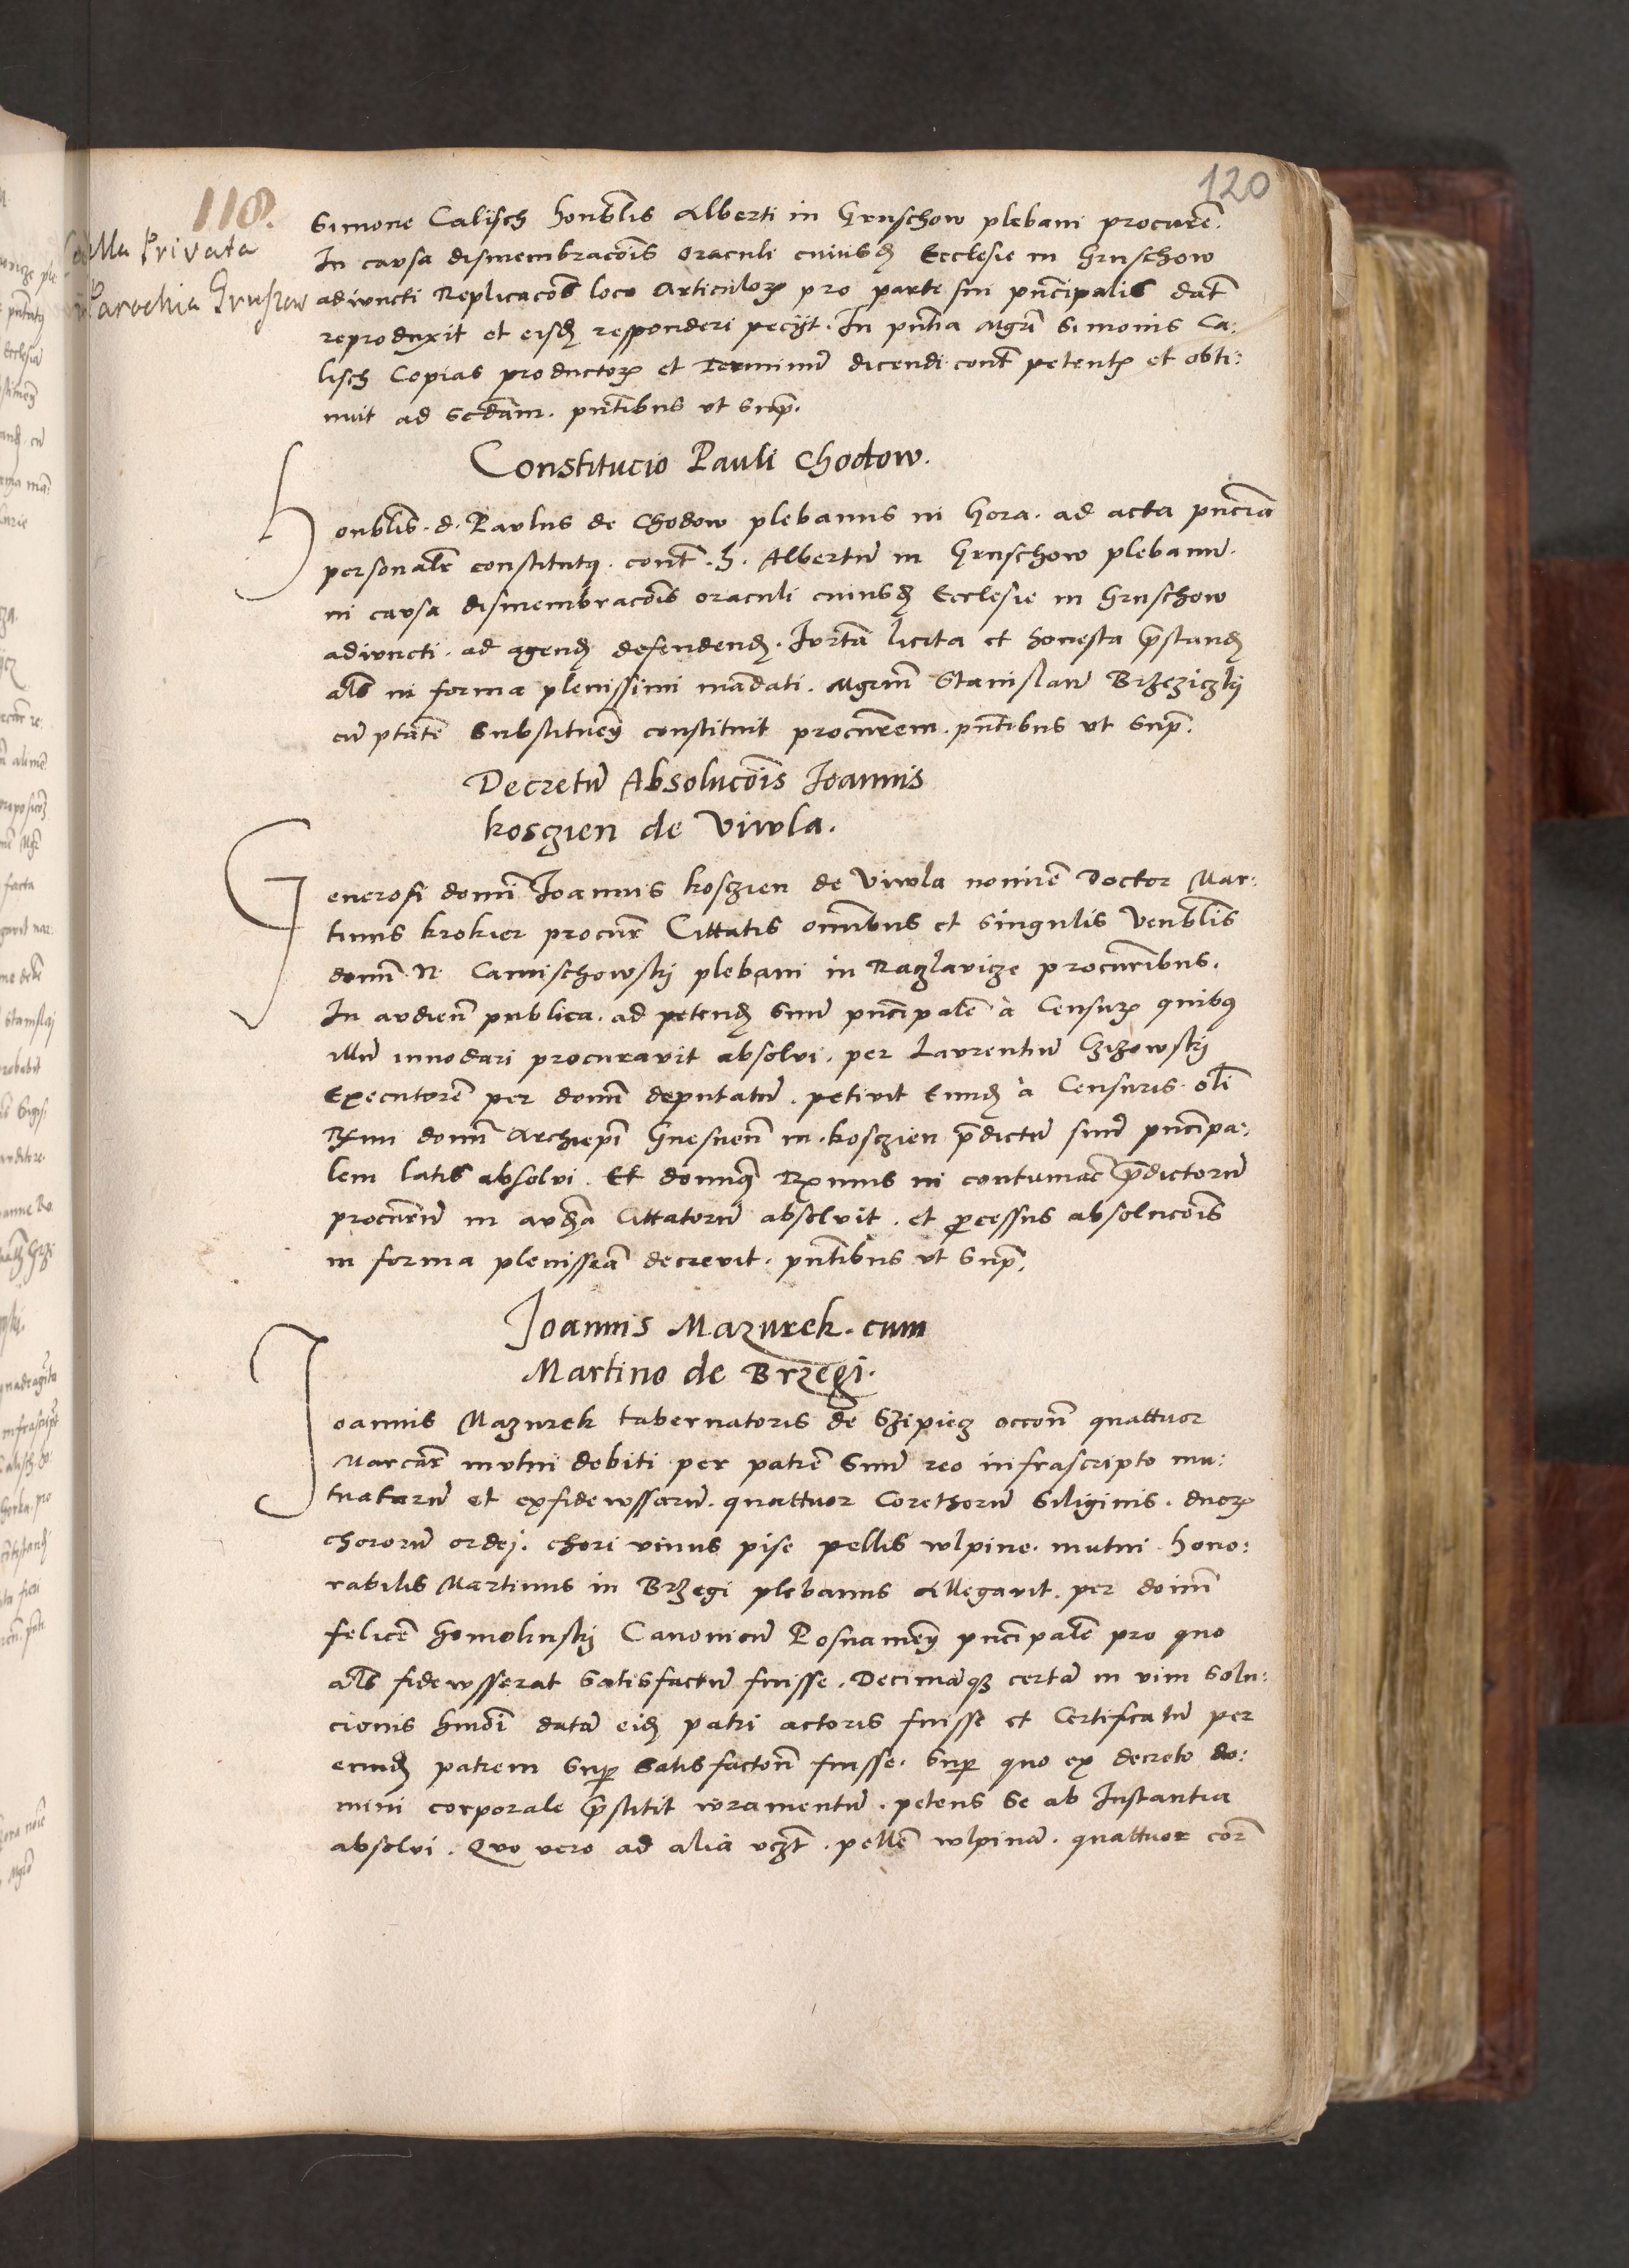 118.
120
Cella Privata
in Parochia Gruszow
Simone Calisch honblis Alberti in Gruschow plebani procurem̃.
In causa dismembracõis oraculi cuiusdã Ecclesie in Gruschow
adiuncti Replicacõs loco Articulorꝫ pro parte sui pñcipalis dat̃
reproduxit et eisdẽ responderi peciit. In pñtia Mgri Simonis Ca:
lisch Copias productorꝫ et Terminũ dicendi cont̃ petentꝫ et obti:
nuit ad scdam. pñtibus ut sup̃.
Constitucio Pauli Chodow.
Honblis. d. Paulus de Chodow plebanus in Gora. ad acta pñcia
personalr̃ constitutꝯ. cont̃. h. Albertũ in Gruschow plebanũ.
in causa dismembracõis oraculi cuiusdã Ecclesie in Gruschow
adiuncti. ad agendũ defendendũ. Iurtã licita et honesta p̃standũ
als in forma plenissimi mãdati. Mgrum Stanislaũ Brzeziczkj
cũ ptãte substituendj constituit procurem̃. pñtibus ut sup̃.
Decretũ Absolucõis Joannis
kosczien de Viwla.
Generosi domĩ Joannis kosczien de Viwla nomine Doctor Mar:
tinus krokier procur̃ Cittatis omĩbus et singulis Venblis
domĩ. N. Camischowskj plebani in Raczlavicze procuribus.
In audienc̃ publica. ad petendũ suũ pñcipalẽ à Censurꝫ quibꝯ
illũ innodari procuravit absolvi. per Laurentiũ Czizowskj
Executorẽ per domĩ deputatũ. petivit Eundẽ à Censuris. olĩ
Rx̃mi domĩ Archiepĩ Gnesneñ in. kosczien p̃dictũ suũ pñcipa:
lem latis absolvi. Et domĩnꝯ Rx̃mus in contumac̃ p̃dictorũ
procurũ in audtĩa Cittatorũ absolvit. et p̃cessus absolucõis
in forma plenissĩa decrevit. pñtibus ut sup̃.
Joannis Mazurek. cum
Martino de Brzegi.
Joannis Mazurek tabernatoris de Szipiecz occoñ quattuor
Marcar̃ mutui debiti per patrẽ suũ reo infrascripto mu:
tuatarũ et exfidewssarũ. quattuor Corethorũ Siliginis. duorꝫ
chororũ ordej. chori vinus pise pellis wlpine. mutui. hono:
rabilis Martinus in Brzegi plebanus Allegavit. per domĩ
felicẽ Homolinskj Canonicũ Posnamenẽ pñcipalẽ pro quo
als fidewsserat satisfactũ fuisse. Decimãqꝫ certã in vim solu:
cionis hmõi datã eidẽ patri actoris fuisse et Certificatũ per
eundẽ patrem sup̃ satisfactoñ fuisse. sup̃ quo ex decreto do:
mini corporale p̃stitit iuramentũ. petens se ab Instantia
absolvi. Quo vero ad alia vczt. pellẽ wlpinã. quattuor cor̃